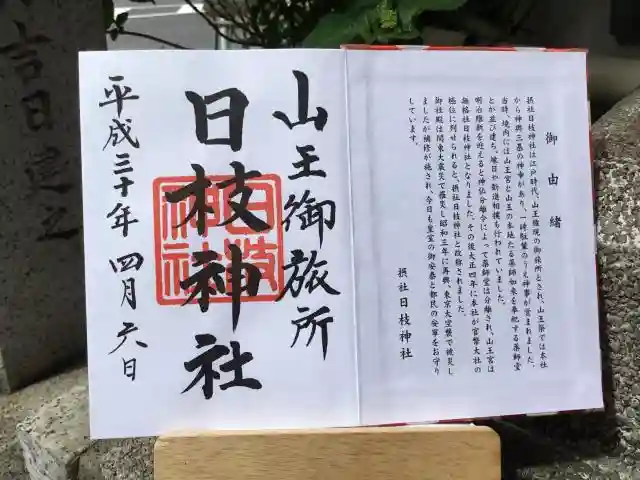 御由緒
摂社日枝神社は江戸時代、山王権現の御旅所とされ、山王祭では本社
から神輿三基の神幸があり、一時駐輦のうえ神事が営まれました。
当時、境内には山王宮と山王の本地たる薬師如来を奉祀する薬師堂
とが並び建ち、縁日や勧進相撲も行われていました。
明治維新を迎えると神仏分離令によって薬師堂は分離され、山王宮は
無格社日枝神社となりました。その後大正四年に本社が官幣大社の
極位に列せられると、摂社日枝神社と改称されました。
御社殿は関東大震災で罹災し昭和三年に再興、東京大空襲で被災し
ましたが補修が施され、今日も皇室の御安泰と都民の安寧をお守り
しています。
摂社日枝神社
山王御旅所
日枝神社
日枝
神社
平成三十年 四月六日
吉日建之